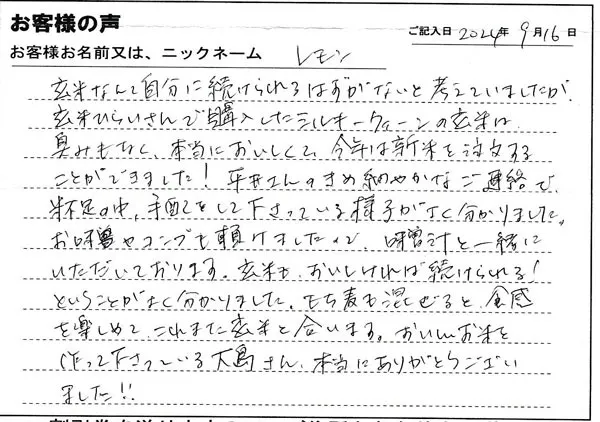 お客様の声
ご記入日 2024年 9月16日
お客様お名前又は、ニックネーム レモン
玄米なんて自分に続けられるはずがないと考えていましたが、
玄米ひらいさんで購入したミルキークィーンの玄米は
臭みもなく、本当においしくて、今年は新米を注文する
ことができました！平井さんのきめ細やかなご連絡で、
米不足の中、手配をして下さっている様子がよく分かりました。
お味噌やコンブも頂けましたので、味噌汁と一緒に
いただいております。玄米も、おいしければ続けられる！
ということがよく分かりました。もち麦も混ぜると、食感
を楽しめて、これまた玄米と合います。おいしいお米を
作って下さっている大島さん、本当にありがとうござい
ました!!